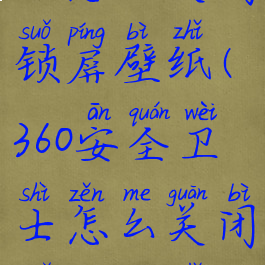 suǒ píng bì zhǐ
锁屏壁纸(
ān quán wèi
360安全卫
shì zěn me guān bì
士怎么关闭